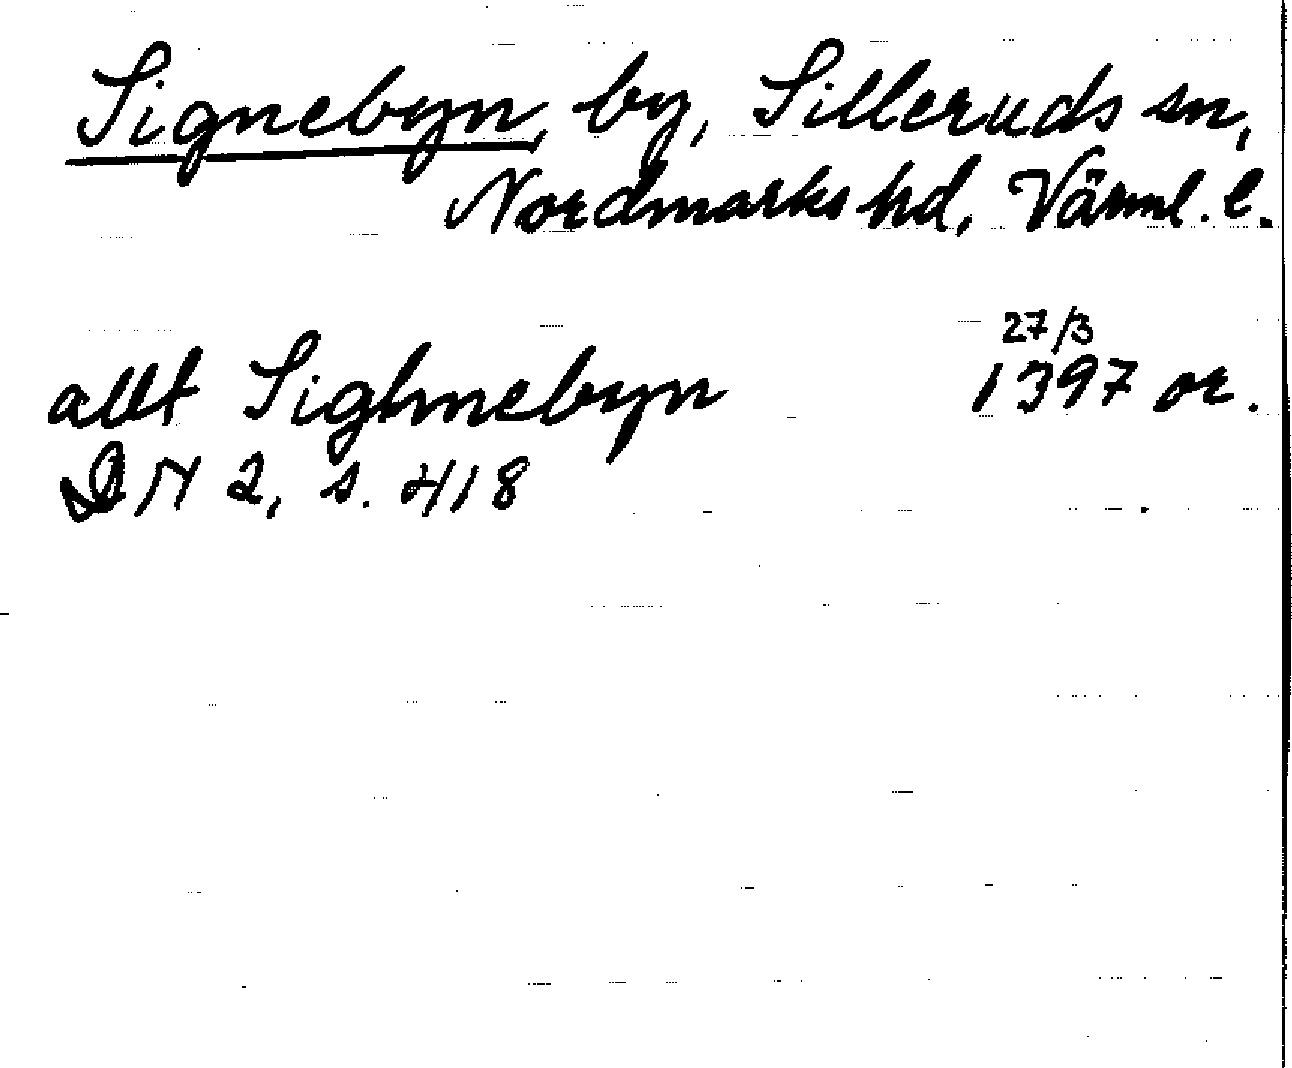 Signebyn, by, Silleruds sn,
Nordmarks hd, Värml. l.
allt Sighnebyn 27/3 1397 or.
DN 2, s. 418